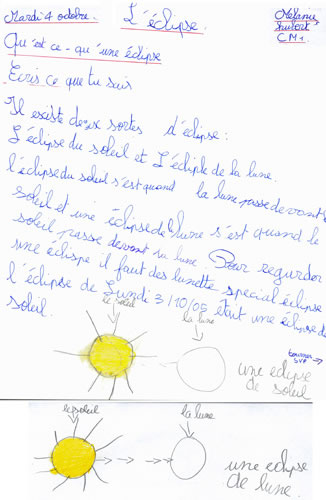 Mardi 4 octobre.
L'éclipse.
Mélanie
CM1
Qu'est ce-qu'une éclipse
Ecris ce que tu sais
Il existe deux sortes d'éclipse:
L'éclipse du soleil et L'éclipse de la lune.
l'éclipse du soleil s'est quand la lune passe devant le
soleil et une éclipse de lune s'est quand le
soleil passe devant la lune Pour regarder
une éclipse il faut des lunette special éclipse
l'éclipse de Lundi 3/10/05 était une éclipse de
soleil.
le soleil
la lune
tourner
SVP
une eclipse
de soleil
le soleil
la lune
une eclipse
de lune